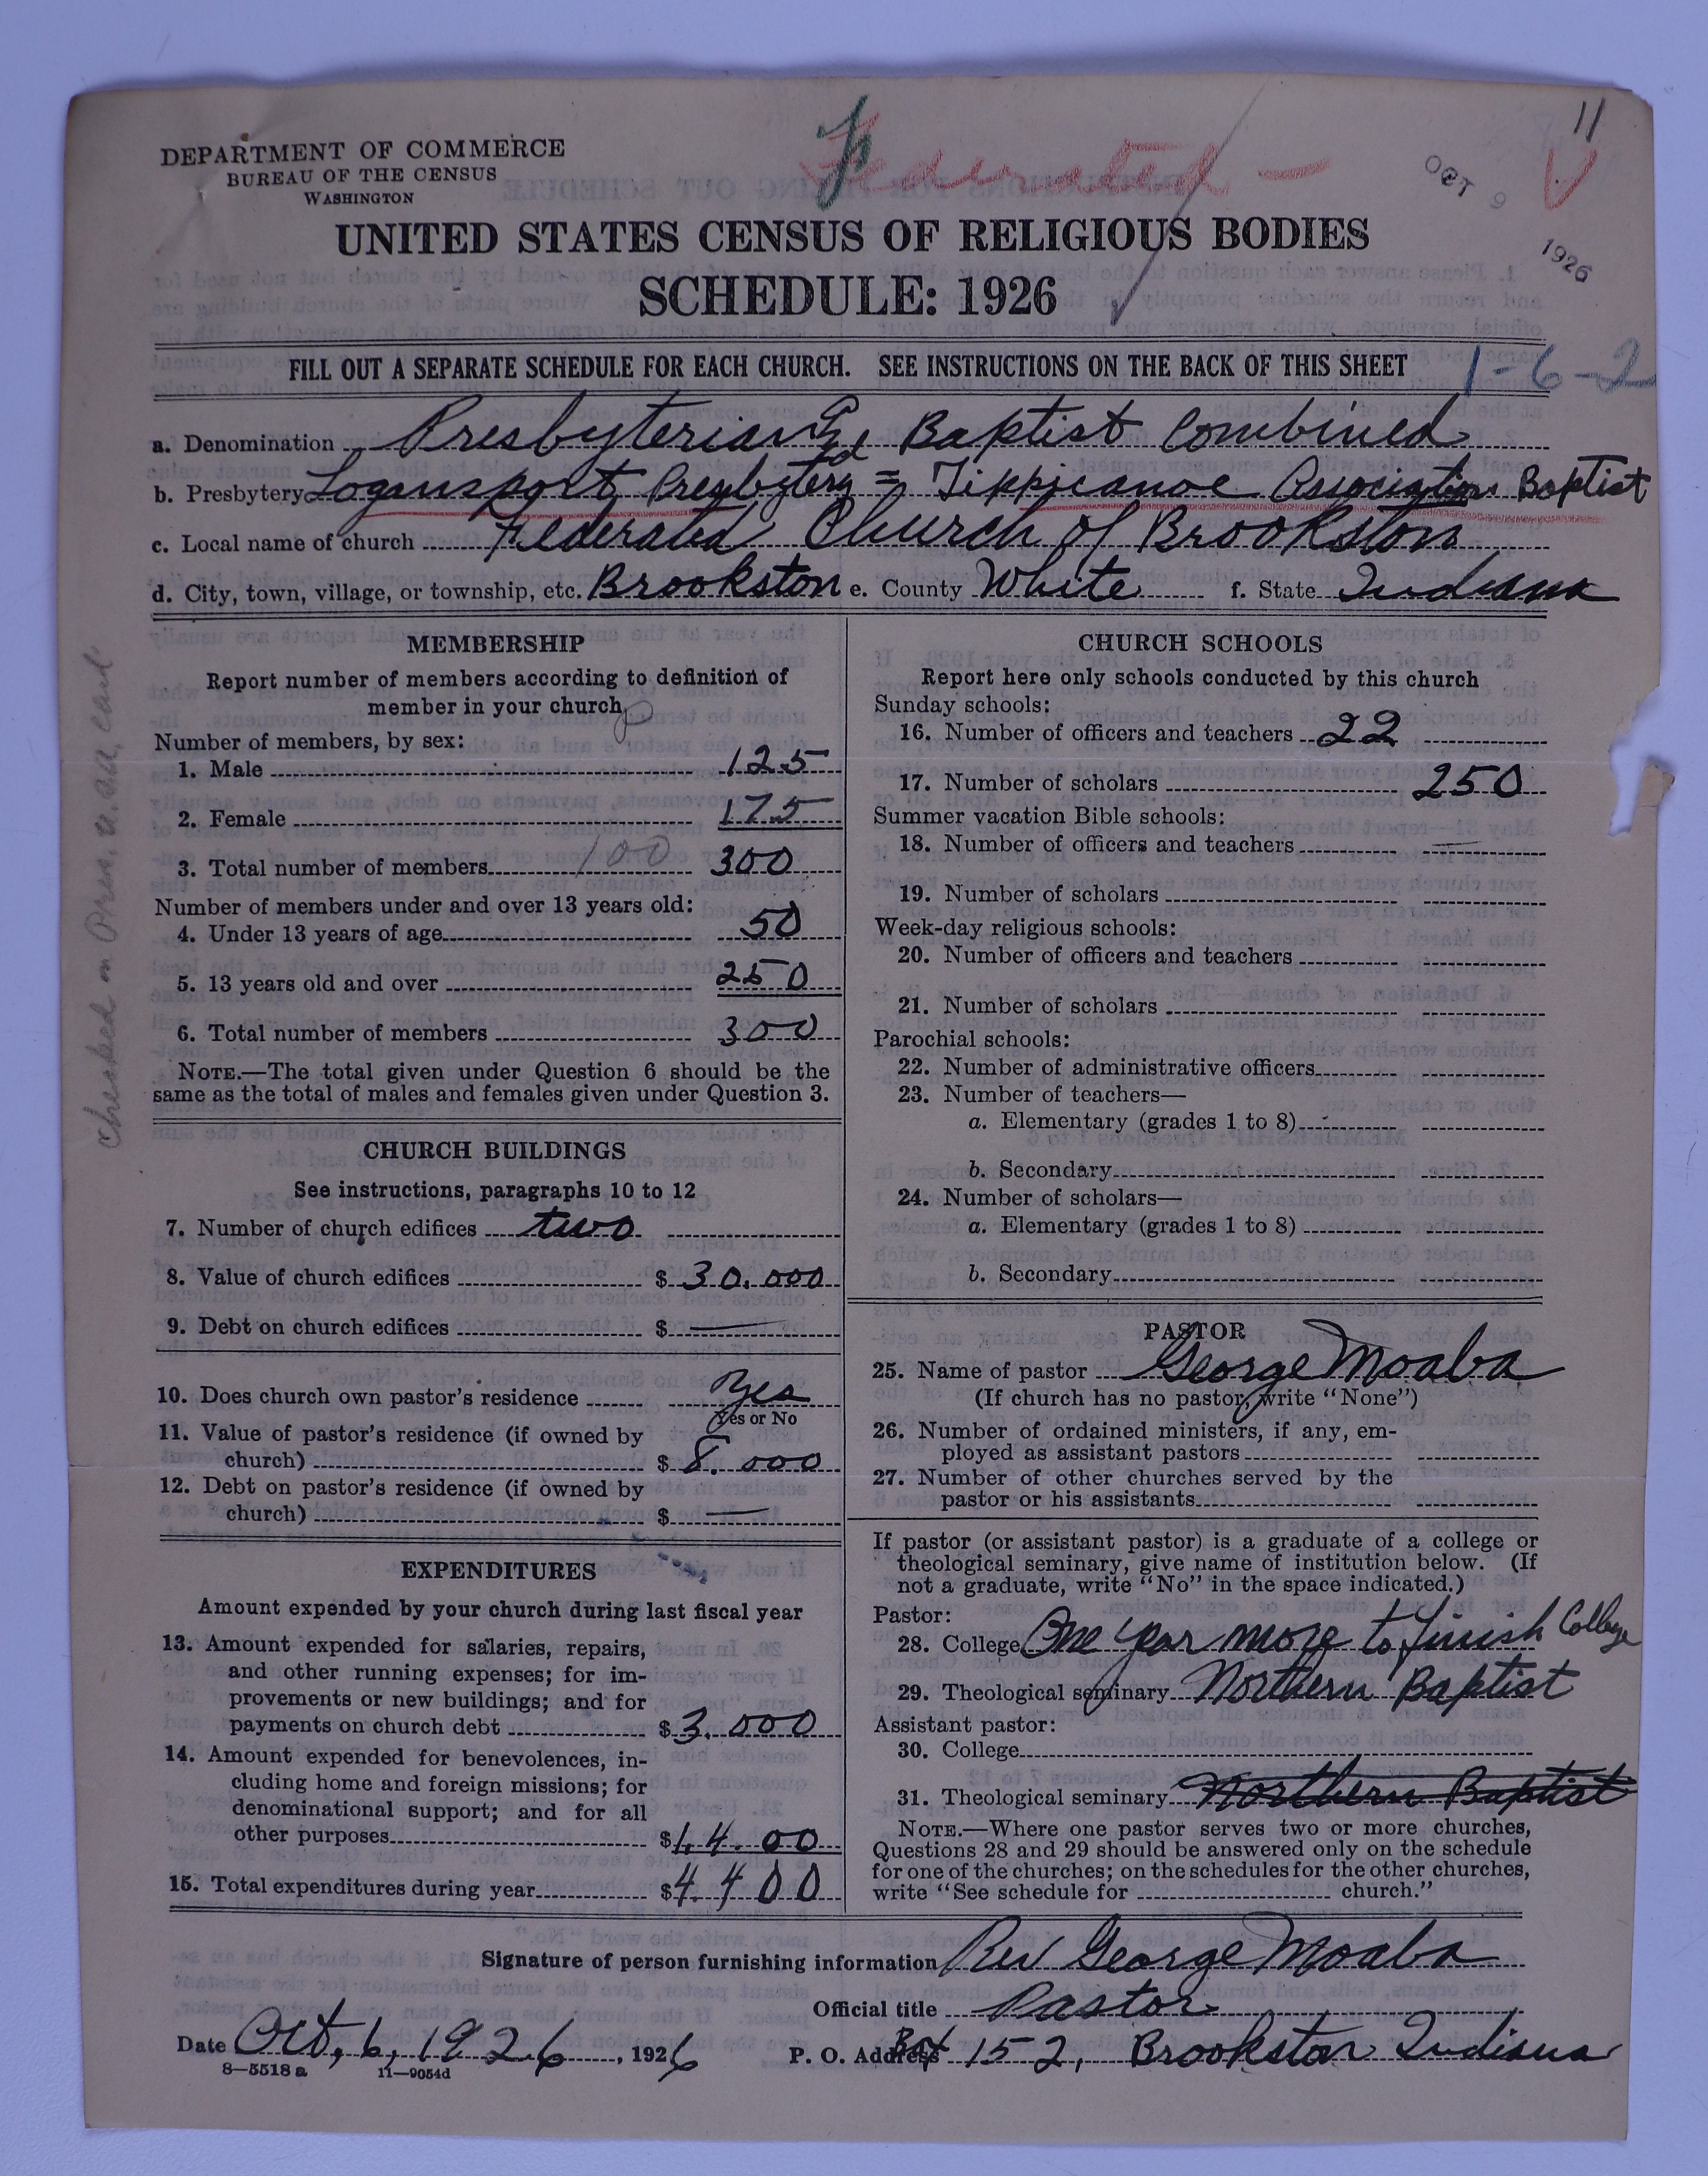 11
Federated —
OCT 9 1926
DEPARTMENT OF COMMERCE
BUREAU OF THE CENSUS
WASHINGTON
UNITED STATES CENSUS OF RELIGIOUS BODIES
SCHEDULE: 1926
FILL OUT A SEPARATE SCHEDULE FOR EACH CHURCH. SEE INSTRUCTIONS ON THE BACK OF THIS SHEET
1-6-2
a. Denomination Presbyterian & Baptist Combined
b. Presbytery Logansport Presbytery = Tippicanoe Association Baptist
c. Local name of church Federated Church of Brookston
d. City, town, village, or township, etc. Brookston e. County White f. State Indiana
MEMBERSHIP
Report number of members according to definition of
member in your church
Number of members, by sex:
1. Male 125
2. Female 175
3. Total number of members 100 300
Number of members under and over 13 years old:
4. Under 13 years of age 50
5. 13 years old and over 250
6. Total number of members 300
NOTE.—The total given under Question 6 should be the
same as the total of males and females given under Question 3.
CHURCH BUILDINGS
See instructions, paragraphs 10 to 12
7. Number of church edifices two
8. Value of church edifices $ 30.000
9. Debt on church edifices $ —
10. Does church own pastor's residence Yes
Yes or No
11. Value of pastor's residence (if owned by
church) $ 8.000
12. Debt on pastor's residence (if owned by
church) $ —
EXPENDITURES
Amount expended by your church during last fiscal year
13. Amount expended for salaries, repairs,
and other running expenses; for im-
provements or new buildings; and for
payments on church debt $ 3.000
14. Amount expended for benevolences, in-
cluding home and foreign missions; for
denominational support; and for all
other purposes $ 14.00
15. Total expenditures during year $ 4.400
CHURCH SCHOOLS
Report here only schools conducted by this church
Sunday schools:
16. Number of officers and teachers 22
17. Number of scholars 250
Summer vacation Bible schools:
18. Number of officers and teachers —
19. Number of scholars
Week-day religious schools:
20. Number of officers and teachers
21. Number of scholars
Parochial schools:
22. Number of administrative officers
23. Number of teachers—
a. Elementary (grades 1 to 8)
b. Secondary
24. Number of scholars—
a. Elementary (grades 1 to 8)
b. Secondary
PASTOR
25. Name of pastor George Moaba
(If church has no pastor, write "None")
26. Number of ordained ministers, if any, em-
ployed as assistant pastors
27. Number of other churches served by the
pastor or his assistants
If pastor (or assistant pastor) is a graduate of a college or
theological seminary, give name of institution below. (If
not a graduate, write "No" in the space indicated.)
Pastor:
28. College One year more to finish College
29. Theological seminary Northern Baptist
Assistant pastor:
30. College
31. Theological seminary Northern Baptist
NOTE.—Where one pastor serves two or more churches,
Questions 28 and 29 should be answered only on the schedule
for one of the churches; on the schedules for the other churches,
write "See schedule for church."
Signature of person furnishing information Rev George Moaba
Official title Pastor
Date Oct, 6, 1926, 1926 P. O. Address Box 152, Brookston Indiana
8—5518 a 11—9054d
checked on Pres. U.S.A. card